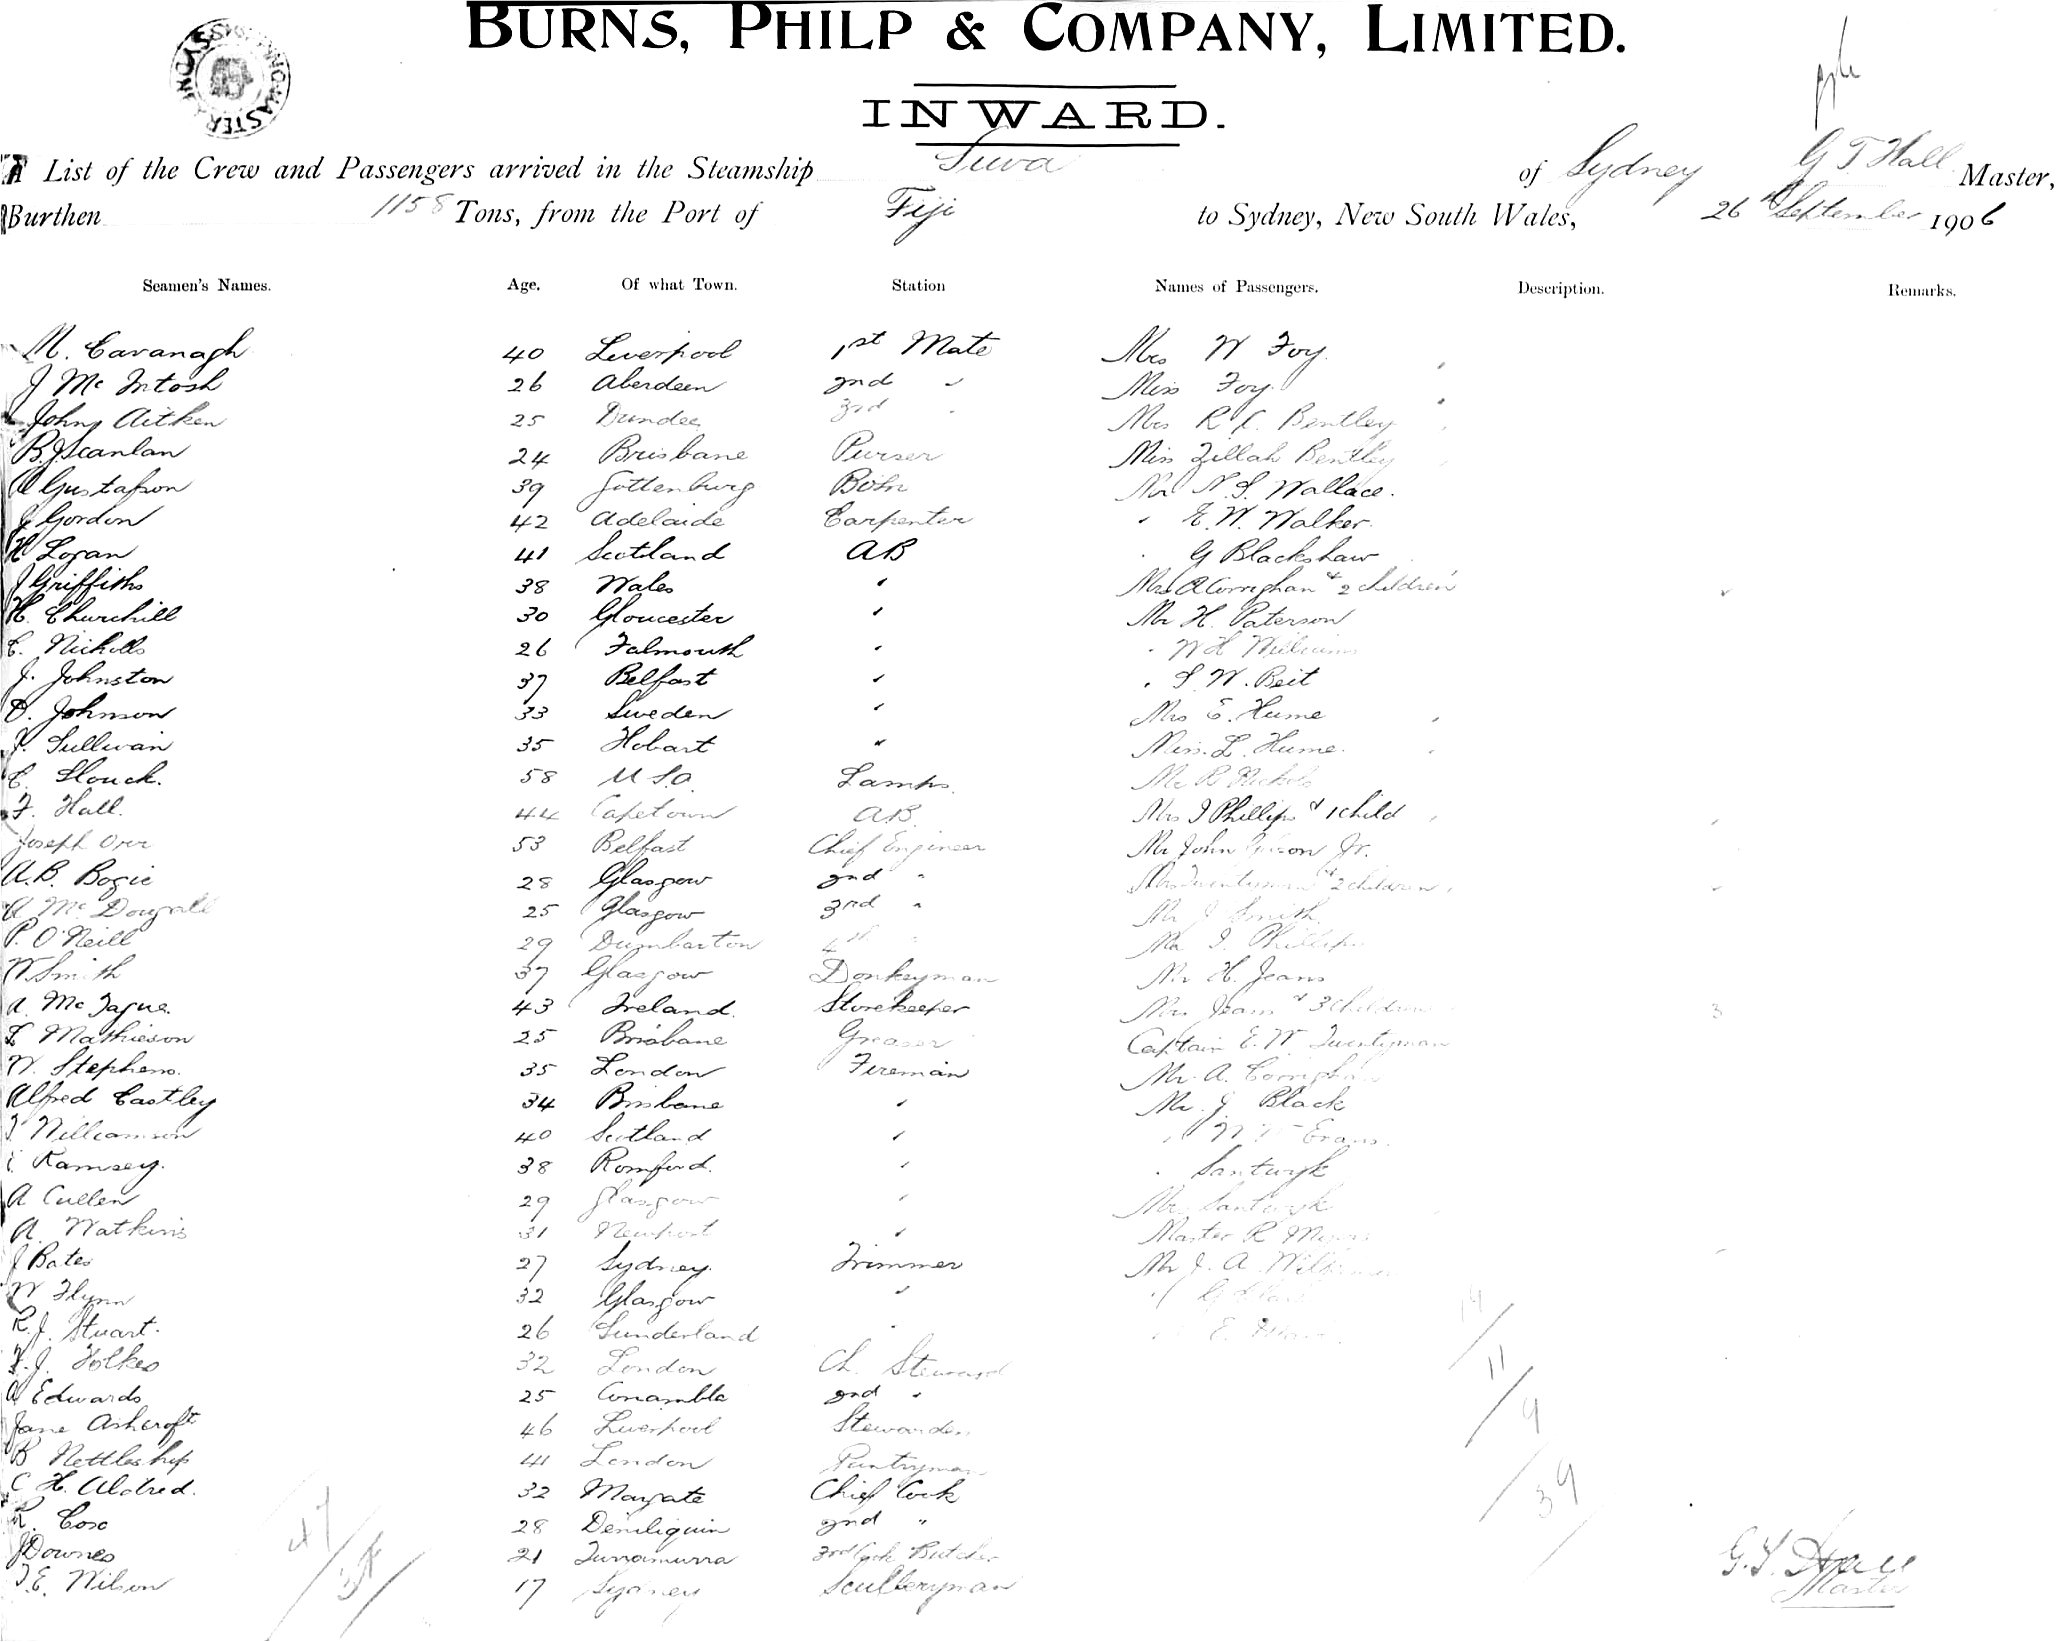 SHIPPING MASTER
BURNS, PHILP & COMPANY, LIMITED.
INWARD.
A List of the Crew and Passengers arrived in the Steamship Suva of Sydney G T Hall Master,
Burthen 1158 Tons, from the Port of Fiji to Sydney, New South Wales, 26th September 1906
Seamen's Names. Age. Of what Town. Station Names of Passengers. Description. Remarks.
M. Cavanagh 40 Liverpool 1st Mate Mrs W Foy
J Mc Intosh 26 Aberdeen 2nd " Miss Foy
John Aitken 25 Dundee 3rd " Mrs R C. Bentley
B. J Scanlan 24 Brisbane Purser Miss Zillah Bentley
A Gustafson 39 Gottenburg Bosn Mr N. S. Wallace.
J Gordon 42 Adelaide Carpenter " E. W. Walker.
H Logan 41 Scotland AB " G Blackshaw
J Griffiths 38 Wales " Mrs A Corrighan & 2 children
H. Churchill 30 Gloucester " Mr H. Paterson
E. Nicholls 26 Falmouth " " W H Williams
J. Johnston 37 Belfast " " S. W. Beit
O. Johnson 33 Sweden " Mrs E. Hume
J. Sullivan 35 Hobart " Miss L. Hume.
C. Slouck. 58 U.S.A. Lamps Mr B Nichols
F. Hall. 44 Capetown AB. Mrs I Phillips & 1 child
Joseph Orr 53 Belfast Chief Engineer Mr John Jr.
A. B. Bogie 28 Glasgow 2nd " Mrs Twentyman & 2 children
A Mc Dougall 25 Glasgow 3rd " Mr J Smith
P. O'Neill 29 Dumbarton 4th " Mr I. Phillips
W. Smith 37 Glasgow Donkeyman Mr H. Jeans
A. Mc Tague. 43 Ireland. Storekeeper Mrs Jeans & 3 children 3
L Mathieson 25 Brisbane Greaser Captain E. W. Twentyman
W. Stephens. 35 London Fireman Mr A. Corrighan
Alfred Castley 34 Brisbane " Mr. J. Black
J Williamson 40 Scotland " " W Evans.
Ramsey. 38 Romford. " " Santwyk
A Cullen 29 Glasgow " Mrs Santwyk
A. Watkins 31 Newport " Master R Myers
J Bates 27 Sydney. Trimmer Mr J. A.
W Flynn 32 Glasgow " " G
R. J. Stuart. 26 Sunderland " " E.
F. J. Folkes 32 London Ch. Steward
A Edwards 25 Conambla 2nd "
Jane Ashcroft 46 Liverpool Stewardess
B Nettleship 41 London Pantryman
C H. Aldred. 32 Margate Chief Cook
R. Cose 28 Deniliquin 2nd "
J Downes 21 Turramurra 3rd Cook Butcher
T. E. Wilson 17 Sydney Sculleryman
19 / 11 / 9 / 39
47 / 38 /
G. T. Hall
Master